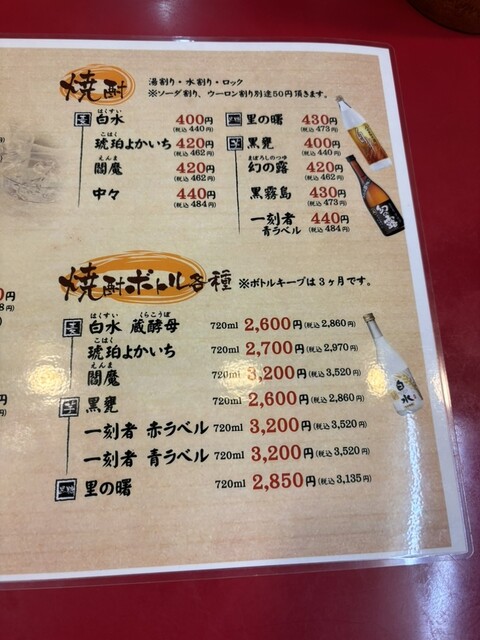 焼酎
湯割り・水割り・ロック
※ソーダ割り、ウーロン割り別途50円頂きます。
麦 白水 はくすい 400円 (税込 440円)
琥珀よかいち こはく 420円 (税込 462円)
閻魔 えんま 420円 (税込 462円)
中々 440円 (税込 484円)
黒糖 里の曙 430円 (税込 473円)
芋 黒甕 400円 (税込 440円)
幻の露 まぼろしのつゆ 420円 (税込 462円)
黒霧島 430円 (税込 473円)
一刻者 青ラベル 440円 (税込 484円)
焼酎ボトル各種 ※ボトルキープは3ヶ月です。
麦 白水 蔵酵母 はくすい くらこうぼ 720ml 2,600円 (税込 2,860円)
琥珀よかいち こはく 720ml 2,700円 (税込 2,970円)
閻魔 えんま 720ml 3,200円 (税込 3,520円)
芋 黒甕 720ml 2,600円 (税込 2,860円)
一刻者 赤ラベル 720ml 3,200円 (税込 3,520円)
一刻者 青ラベル 720ml 3,200円 (税込 3,520円)
黒糖 里の曙 720ml 2,850円 (税込 3,135円)
幻の露
白水